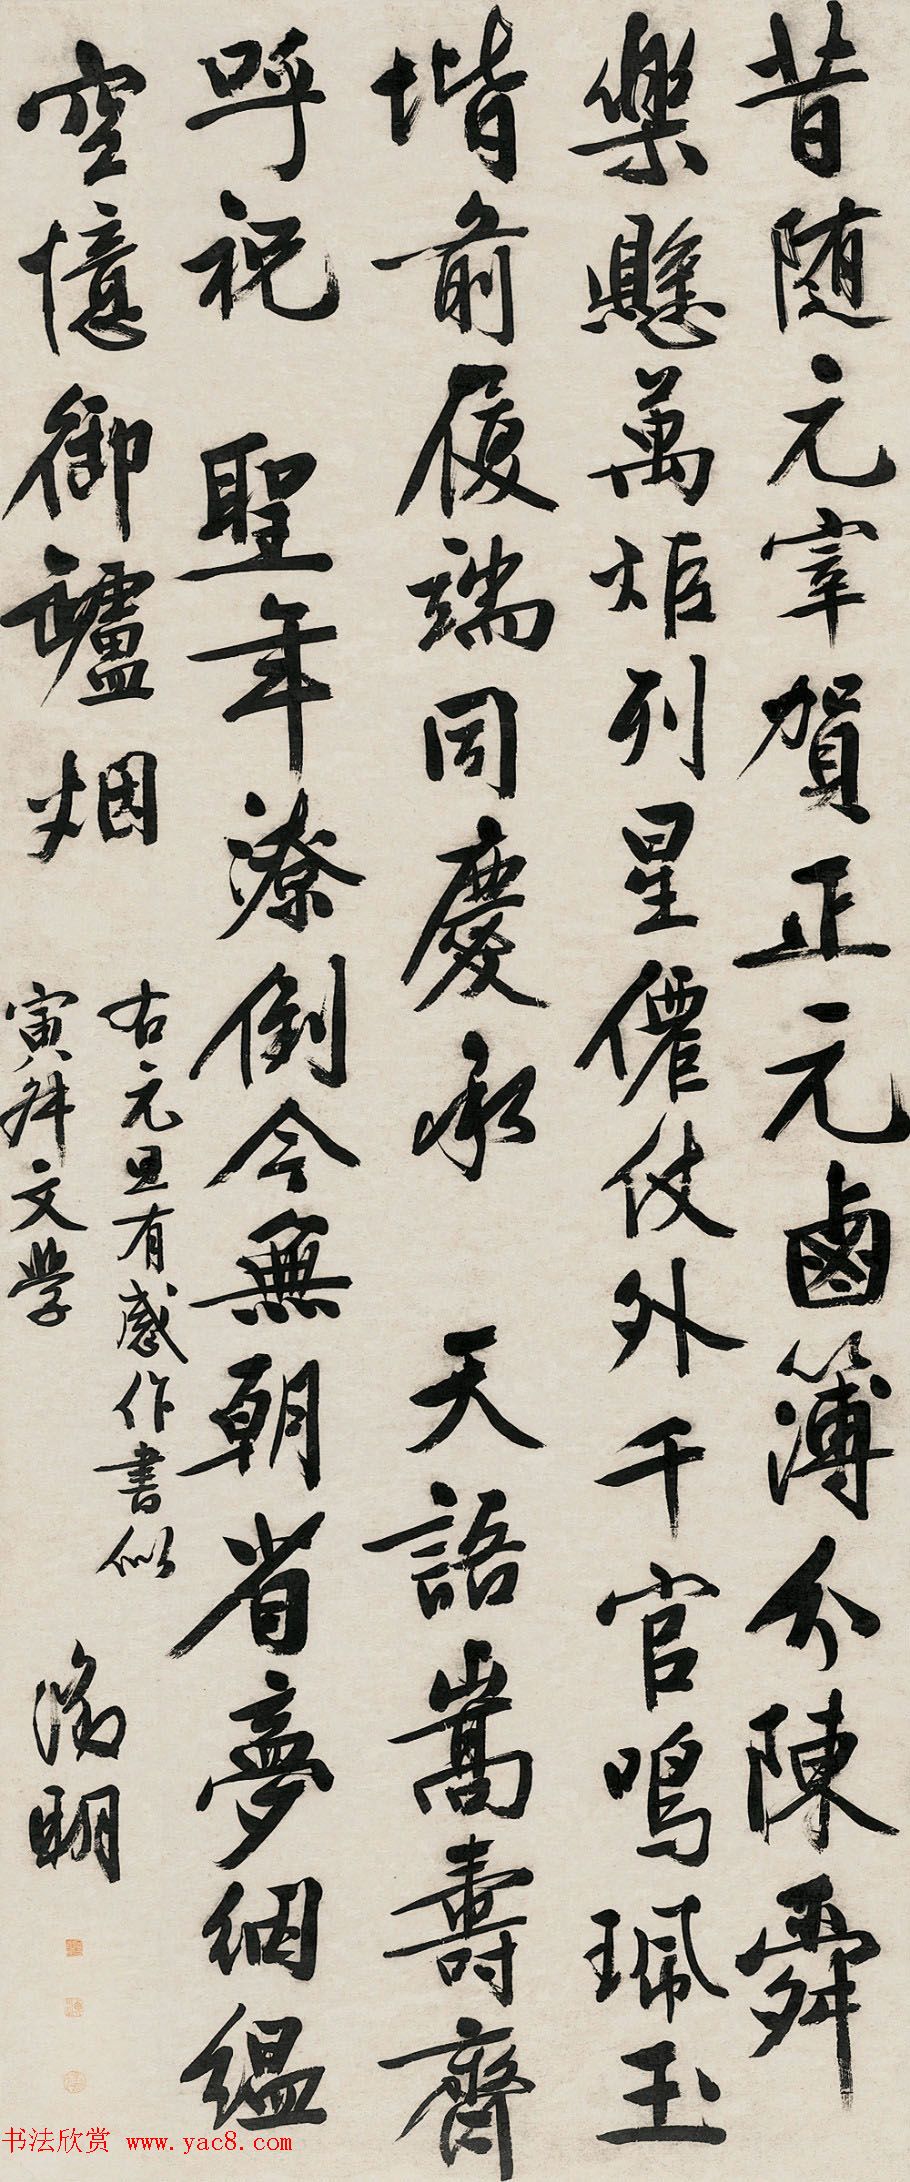 昔随元宰賀正元鹵簿分陳舜
樂懸萬炬列星僊仗外千官鳴珮玉
堦前履端同慶承天語嵩壽齊
呼祝聖年潦倒今無朝省夢絪縕
空憶御罏烟
右元旦有感作書似
寅舛文學
瀚明
书法欣赏 www.yac8.com